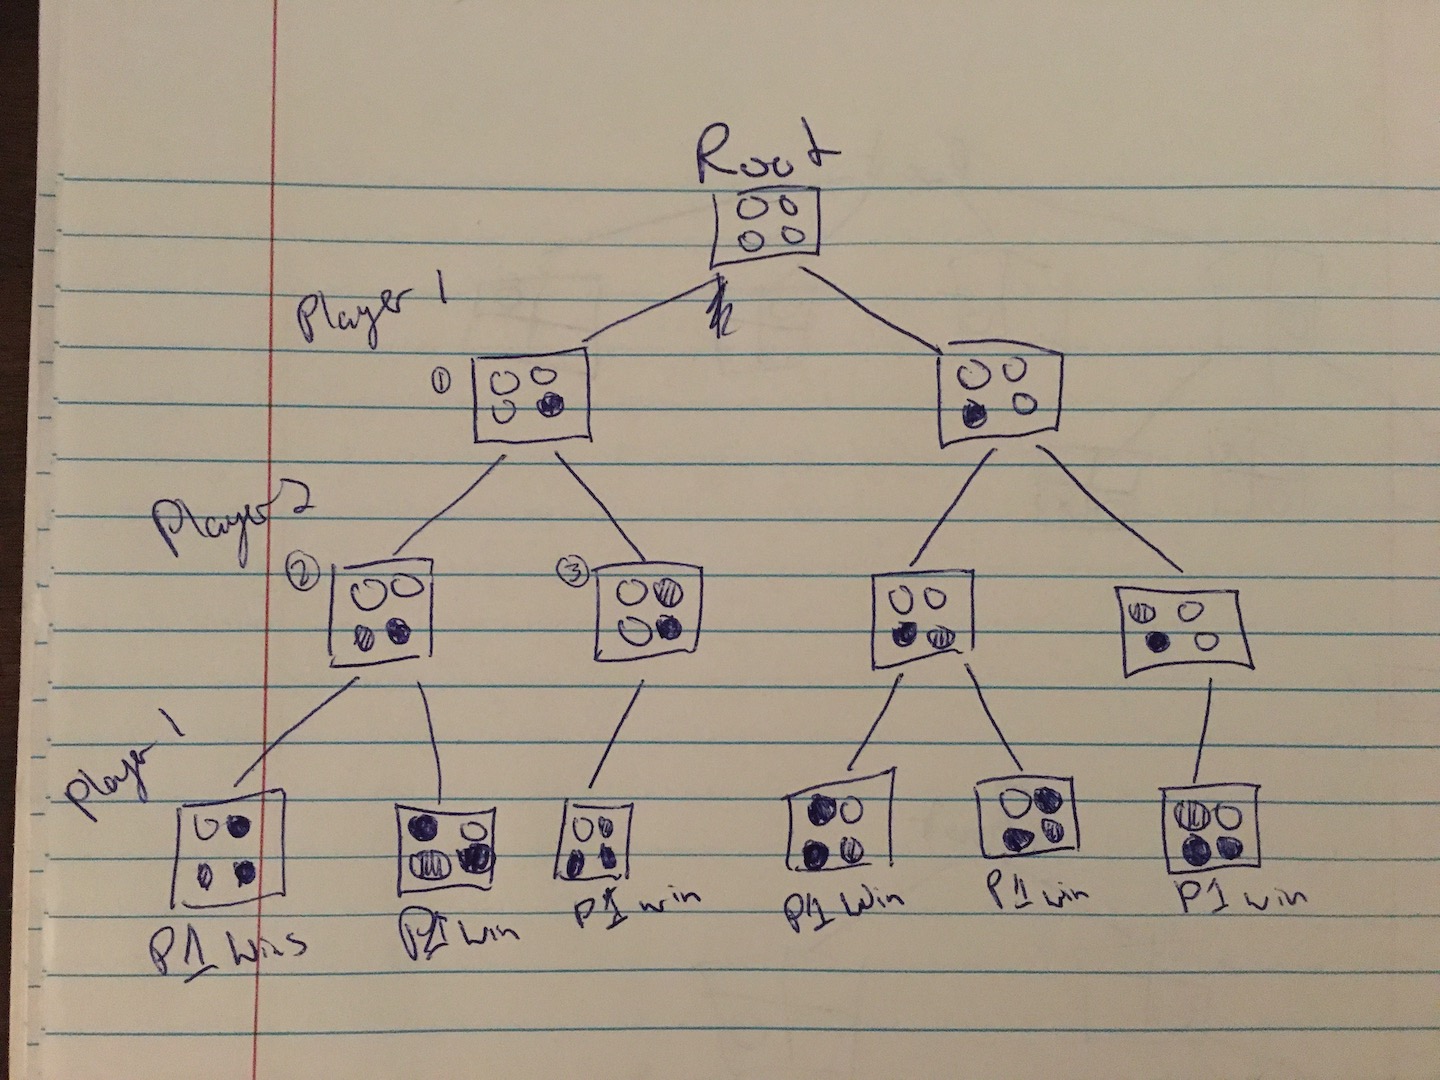 Root
Player 1
①
Player 2
②
③
Player 1
P1 wins
P1 win
P1 win
P1 win
P1 win
P1 win